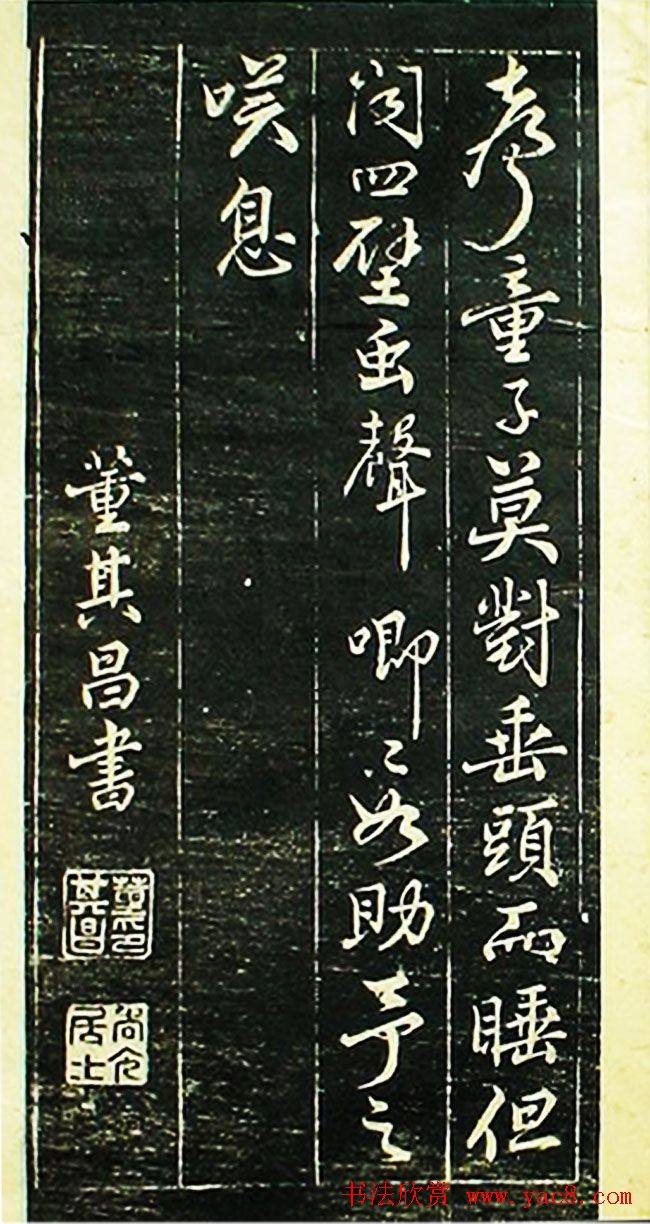 聲童子莫對垂頭而睡但
聞四壁虫聲唧〻如助予之
嘆息
董其昌書
董印其昌
居士
书法欣赏 www.yac8.com